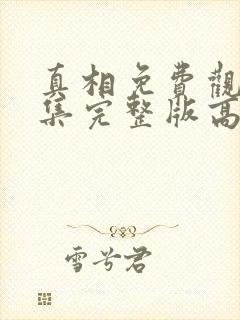 真相免費觀
集完整版高
雪兮君